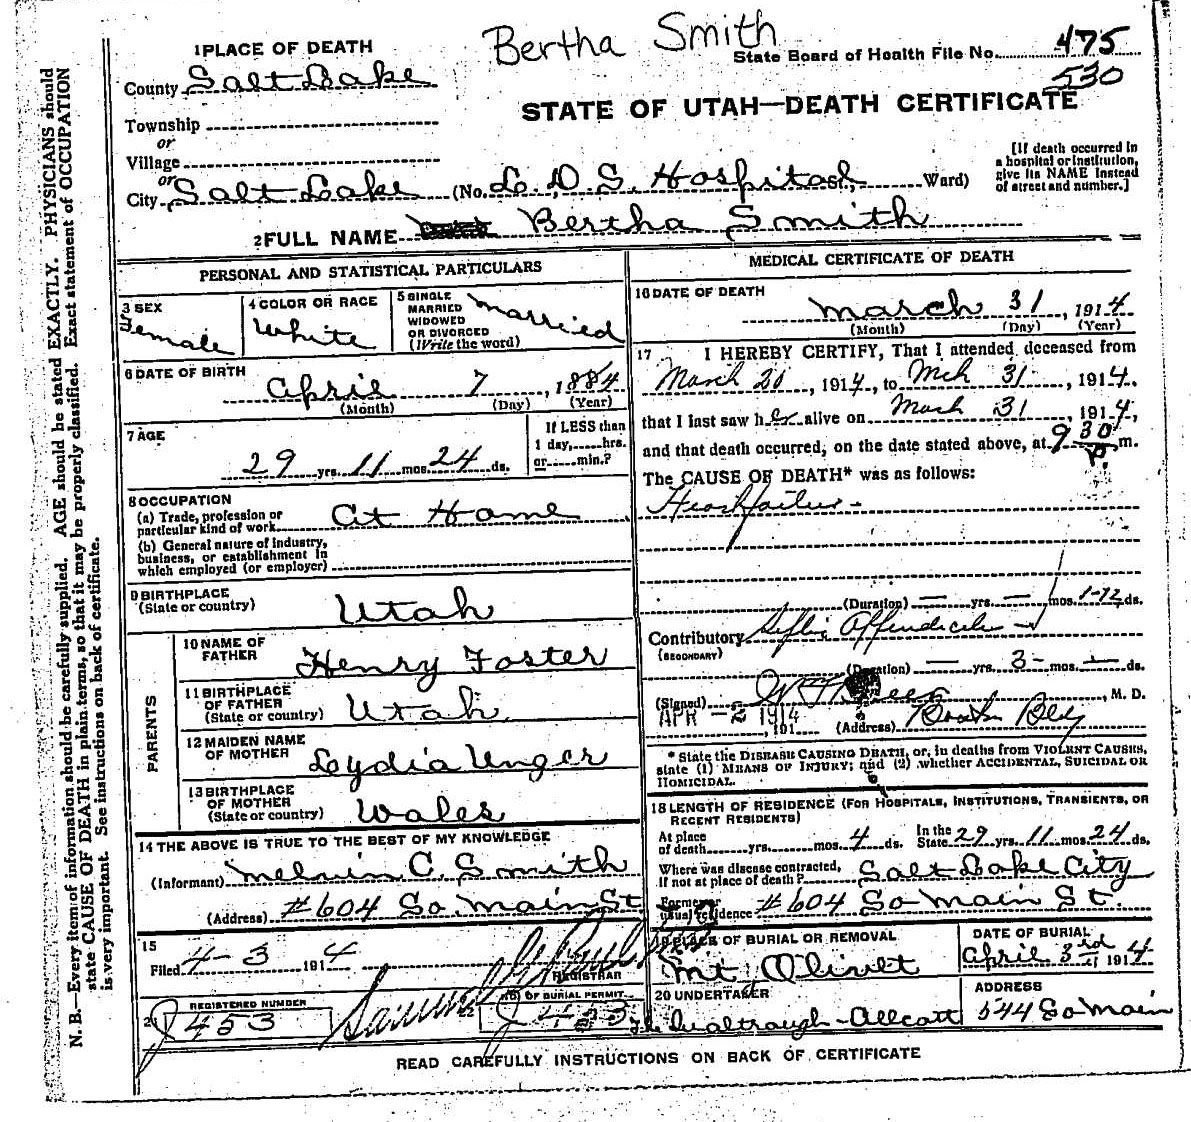 Bertha Smith
State Board of Health File No. 475
530
STATE OF UTAH—DEATH CERTIFICATE
1 PLACE OF DEATH
County Salt Lake
Township
or
Village
or
City Salt Lake (No. L. D. S. Hospital St., Ward)
[If death occurred in
a hospital or institution,
give its NAME instead
of street and number.]
2 FULL NAME Bertha Smith
PERSONAL AND STATISTICAL PARTICULARS
3 SEX
Female
4 COLOR OR RACE
White
5 SINGLE
MARRIED
WIDOWED
OR DIVORCED
(Write the word)
Married
6 DATE OF BIRTH
April 7, 1884
(Month) (Day) (Year)
7 AGE
29 yrs. 11 mos. 24 ds.
If LESS than
1 day, hrs.
or min.?
8 OCCUPATION
(a) Trade, profession or
particular kind of work At Home
(b) General nature of industry,
business, or establishment in
which employed (or employer)
9 BIRTHPLACE
(State or country) Utah
PARENTS
10 NAME OF
FATHER Henry Foster
11 BIRTHPLACE
OF FATHER
(State or country) Utah
12 MAIDEN NAME
OF MOTHER Lydia Unger
13 BIRTHPLACE
OF MOTHER
(State or country) Wales
14 THE ABOVE IS TRUE TO THE BEST OF MY KNOWLEDGE
(Informant) Melvin C. Smith
(Address) #604 So. Main St
15
Filed 4-3 1914
REGISTRAR
REGISTERED NUMBER
453
NO. OF BURIAL PERMIT
453
MEDICAL CERTIFICATE OF DEATH
16 DATE OF DEATH
March 31, 1914
(Month) (Day) (Year)
17 I HEREBY CERTIFY, That I attended deceased from
March 20, 1914, to Mch 31, 1914,
that I last saw her alive on March 31, 1914,
and that death occurred, on the date stated above, at 9 30 P. m.
The CAUSE OF DEATH* was as follows:
Heart failure -
(Duration) — yrs. — mos. ds.
Contributory Septic Appendicitis
(SECONDARY)
(Duration) — yrs. 3 - mos. — ds.
(Signed) , M. D.
APR - 2 1914
, 191 (Address) Boston Bldg
* State the DISEASE CAUSING DEATH, or, in deaths from VIOLENT CAUSES,
state (1) MEANS OF INJURY; and (2) whether ACCIDENTAL, SUICIDAL OR
HOMICIDAL.
18 LENGTH OF RESIDENCE (FOR HOSPITALS, INSTITUTIONS, TRANSIENTS, OR
RECENT RESIDENTS)
At place
of death yrs. mos. 4 ds.
In the
State 29 yrs. 11 mos. 24 ds.
Where was disease contracted,
if not at place of death? Salt Lake City
Former or
usual residence #604 So Main St.
19 PLACE OF BURIAL OR REMOVAL
Mt. Olivet
DATE OF BURIAL
April 3rd 1914
20 UNDERTAKER
ADDRESS
544 So Main
READ CAREFULLY INSTRUCTIONS ON BACK OF CERTIFICATE
N. B.—Every item of information should be carefully supplied. AGE should be stated EXACTLY. PHYSICIANS should
state CAUSE OF DEATH in plain terms, so that it may be properly classified. Exact statement of OCCUPATION
is very important. See instructions on back of certificate.